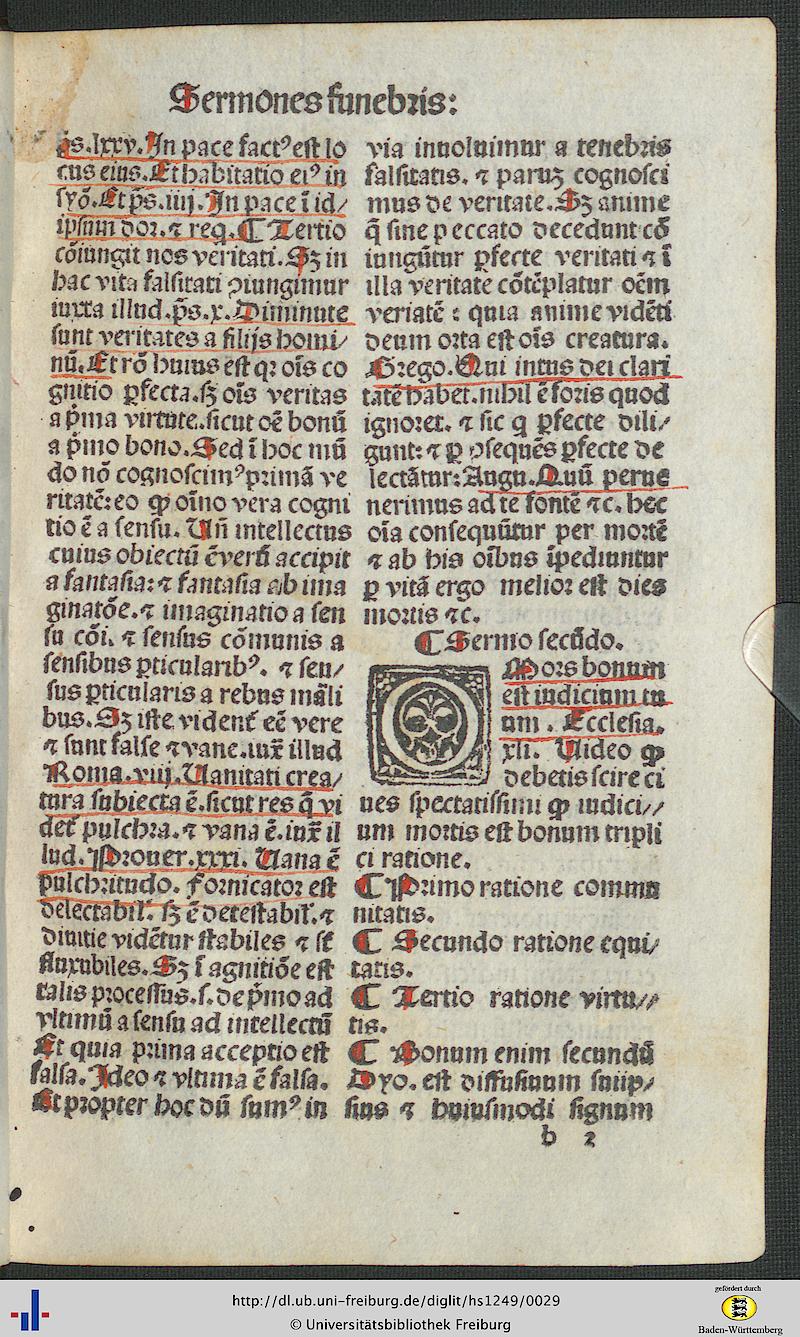 Sermones funebris:
p̄s.lxxv. In pace factꝰ est lo
cus eius. Et habitatio eiꝰ in
syō. Et p̄s. iiij. In pace ī id/
ipsum dor. ⁊ req̄. ¶ Tertio
cōiungit nos veritati. Sꝫ in
hac vita falsitati ꝯiungimur
iuxta illud. p̄s. x. Diminute
sunt veritates a filijs homi/
nū. Et rō huius est qꝛ oīs co
gnitio ꝑfecta. sꝫ oīs veritas
a p̄ma virtute. sicut oē bonū
a p̄mo bono. Sed ī hoc mū
do nō cognoscimꝰ primā ve
ritatē: eo ꝙ oīno vera cogni
tio ē a sensu. Uñ intellectus
cuius obiectū ē verū accipit
a fantasia: ⁊ fantasia ab ima
ginatōe. ⁊ imaginatio a sen
su cōi. ⁊ sensus cōmunis a
sensibus ꝑticularibꝰ. ⁊ sen/
sus ꝑticularis a rebus māli
bus. Sꝫ iste vident᷑ eē vere
⁊ sunt false ⁊ vane. iux̄ illud
Roma. viij. Uanitati crea/
tura subiecta ē. sicut res q̄ vi
det᷑ pulchra. ⁊ vana ē. iux̄ il
lud. Prouer. xxxi. Uana ē
pulchritudo. fornicator est
delectabil̓. sꝫ ē detestabil̓. ⁊
diuitie vidētur stabiles ⁊ st̄
fluxubiles. Sꝫ ī agnitiōe est
talis processus. s. de p̄mo ad
vltimū a sensu ad intellectū
Et quia prima acceptio est
falsa. Ideo ⁊ vltima ē falsa.
Et propter hoc dū sumꝰ in
via inuoluimur a tenebris
falsitatis. ⁊ paruꝫ cognosci
mus de veritate. Sꝫ anime
q̄ sine peccato decedunt cō
iungūtur ꝑfecte veritati ⁊ ī
illa veritate cōtēplatur oēm
veriatē: quia anime vidēti
deum orta est oīs creatura.
Grego. Qui intus dei clari
tatē habet. nihil ē foris quod
ignoret. ⁊ sic q ꝑfecte dili/
gunt: ⁊ ꝑ ꝯsequēs ꝑfecte de
lectātur: Augu. Quū perue
nerimus ad te fontē ⁊c. hec
oīa consequūtur per mortē
⁊ ab his oībus īpediuntur
ꝑ vitā ergo melior est dies
mortis ⁊c.
¶ Sermo secūdo.
O Mors bonum
est iudicium tu
um. Ecclesia.
xli. Uideo ꝙ
debetis scire ci
ues spectatissimi ꝙ iudici//
um mortis est bonum tripli
ci ratione.
¶ Primo ratione commu
nitatis.
¶ Secundo ratione equi/
tatis.
¶ Tertio ratione virtu//
tis.
¶ Bonum enim secundū
Dyo. est diffusiuum suiip/
sius ⁊ huiusmodi signum
b 2
http://dl.ub.uni-freiburg.de/diglit/hs1249/0029
© Universitätsbibliothek Freiburg
gefördert durch
Baden-Württemberg